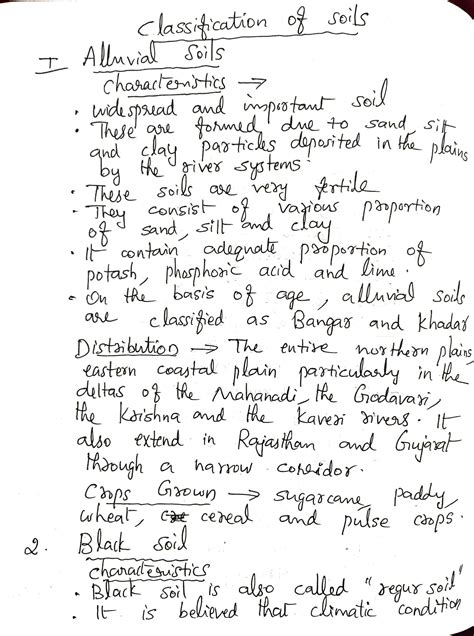 Classification of soils
I Alluvial Soils
Characteristics →
• widespread and important soil
• These are formed due to sand, silt
and clay particles deposited in the plains
by the river systems.
• These soils are very fertile
• They consist of various proportion
of sand, silt and clay
• It contain adequate proportion of
potash, phosphoric acid and lime.
• On the basis of age, alluvial soils
are classified as Bangar and Khadar
Distribution → The entire northern plains,
eastern coastal plain particularly in the
deltas of the Mahanadi, the Godavari,
the Krishna and the Kaveri rivers. It
also extend in Rajasthan and Gujarat
through a narrow corridor.
Crops Grown → sugarcane, paddy,
wheat, cereal and pulse crops.
2. Black Soil
characteristics
• Black soil is also called "regur soil"
• It is believed that climatic condition